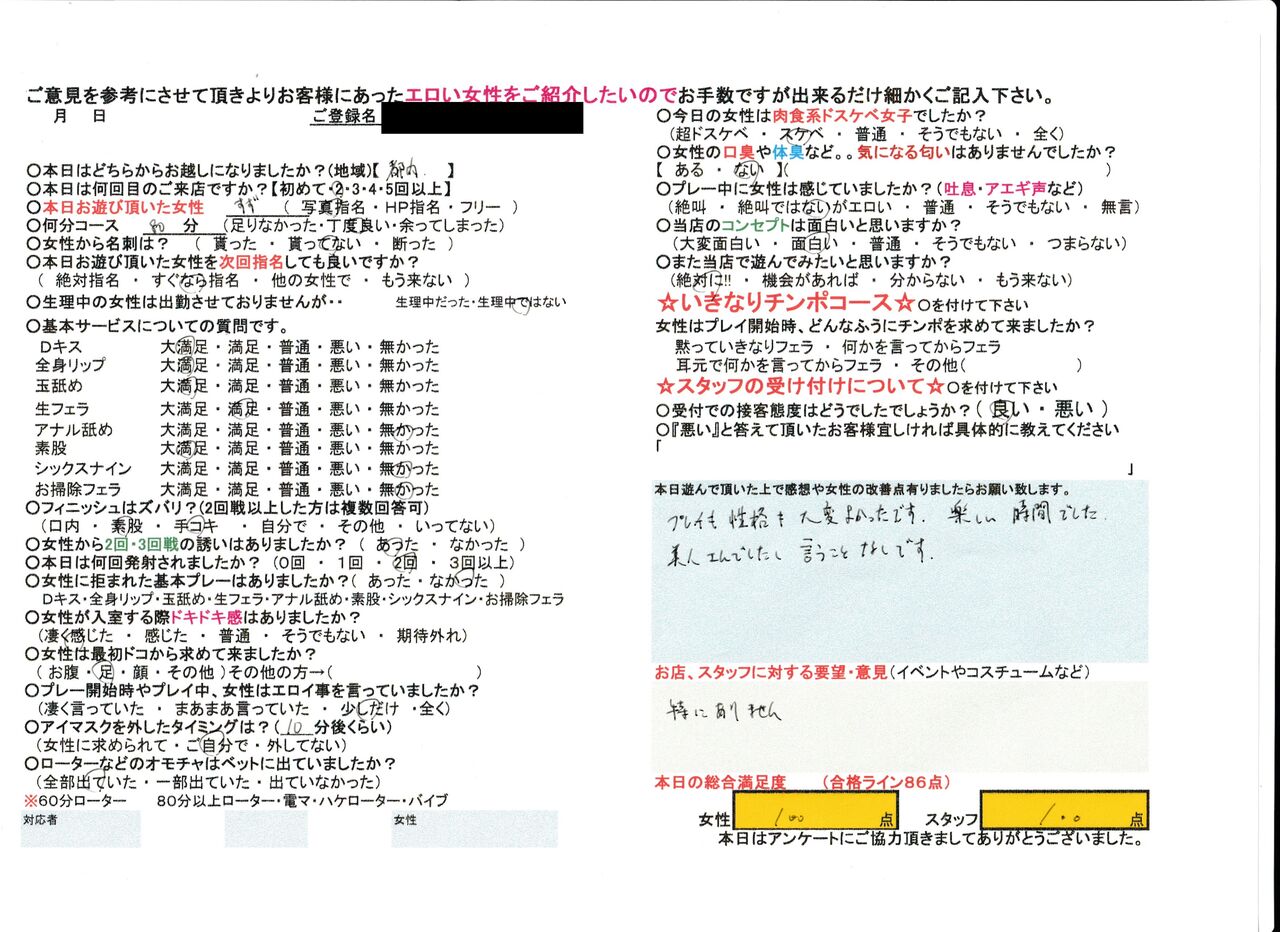 ご意見を参考にさせて頂きよりお客様にあったエロい女性をご紹介したいのでお手数ですが出来るだけ細かくご記入下さい。
月 日 ご登録名
〇本日はどちらからお越しになりましたか?(地域)【 都内 】
〇本日は何回目のご来店ですか?【初めて・2・3・4・5回以上】
〇本日お遊び頂いた女性 すず ( 写真指名・HP指名・フリー )
〇何分コース 80 分 (足りなかった・丁度良い・余ってしまった)
〇女性から名刺は? ( 貰った ・ 貰ってない ・ 断った )
〇本日お遊び頂いた女性を次回指名しても良いですか?
( 絶対指名 ・ すぐなら指名 ・ 他の女性で ・ もう来ない )
〇生理中の女性は出勤させておりませんが・・ 生理中だった・生理中ではない
〇基本サービスについての質問です。
Dキス 大満足・満足・普通・悪い・無かった
全身リップ 大満足・満足・普通・悪い・無かった
玉舐め 大満足・満足・普通・悪い・無かった
生フェラ 大満足・満足・普通・悪い・無かった
アナル舐め 大満足・満足・普通・悪い・無かった
素股 大満足・満足・普通・悪い・無かった
シックスナイン 大満足・満足・普通・悪い・無かった
お掃除フェラ 大満足・満足・普通・悪い・無かった
〇フィニッシュはズバリ?(2回戦以上した方は複数回答可)
(口内 ・ 素股 ・ 手コキ ・ 自分で ・ その他 ・ いってない)
〇女性から2回・3回戦の誘いはありましたか? ( あった ・ なかった )
〇本日は何回発射されましたか? (0回 ・ 1回 ・ 2回 ・ 3回以上)
〇女性に拒まれた基本プレーはありましたか?( あった ・ なかった )
Dキス・全身リップ・玉舐め・生フェラ・アナル舐め・素股・シックスナイン・お掃除フェラ
〇女性が入室する際ドキドキ感はありましたか?
(凄く感じた ・ 感じた ・ 普通 ・ そうでもない ・ 期待外れ)
〇女性は最初ドコから求めて来ましたか?
( お腹 ・ 足 ・ 顔 ・ その他 )その他の方→( )
〇プレー開始時やプレイ中、女性はエロイ事を言っていましたか?
(凄く言っていた ・ まあまあ言っていた ・ 少しだけ ・全く)
〇アイマスクを外したタイミングは?( 10 分後くらい)
(女性に求められて・ご自分で・外してない)
〇ローターなどのオモチャはベットに出ていましたか?
(全部出ていた・一部出ていた・出ていなかった)
※60分ローター 80分以上ローター・電マ・ハケローター・バイブ
対応者 女性
〇今日の女性は肉食系ドスケベ女子でしたか?
(超ドスケベ ・ スケベ ・ 普通 ・ そうでもない ・ 全く)
〇女性の口臭や体臭など。。気になる匂いはありませんでしたか?
【 ある ・ ない 】( )
〇プレー中に女性は感じていましたか?(吐息・アエギ声など)
(絶叫 ・ 絶叫ではないがエロい ・ 普通 ・ そうでもない ・ 無言)
〇当店のコンセプトは面白いと思いますか?
(大変面白い ・ 面白い ・ 普通 ・ そうでもない ・ つまらない)
〇また当店で遊んでみたいと思いますか?
(絶対に!! ・ 機会があれば ・ 分からない ・ もう来ない)
☆いきなりチンポコース☆〇を付けて下さい
女性はプレイ開始時、どんなふうにチンポを求めて来ましたか?
黙っていきなりフェラ ・ 何かを言ってからフェラ
耳元で何かを言ってからフェラ ・ その他( )
☆スタッフの受け付けについて☆〇を付けて下さい
〇受付での接客態度はどうでしたでしょうか?( 良い ・ 悪い )
〇『悪い』と答えて頂いたお客様宜しければ具体的に教えてください
「
」
本日遊んで頂いた上で感想や女性の改善点有りましたらお願い致します。
プレイも性格も大変よかったです. 楽しい時間でした.
美人さんでしたし 言うことなしです.
お店、スタッフに対する要望・意見(イベントやコスチュームなど)
特にありません
本日の総合満足度 (合格ライン86点)
女性 100 点 スタッフ 100 点
本日はアンケートにご協力頂きましてありがとうございました。